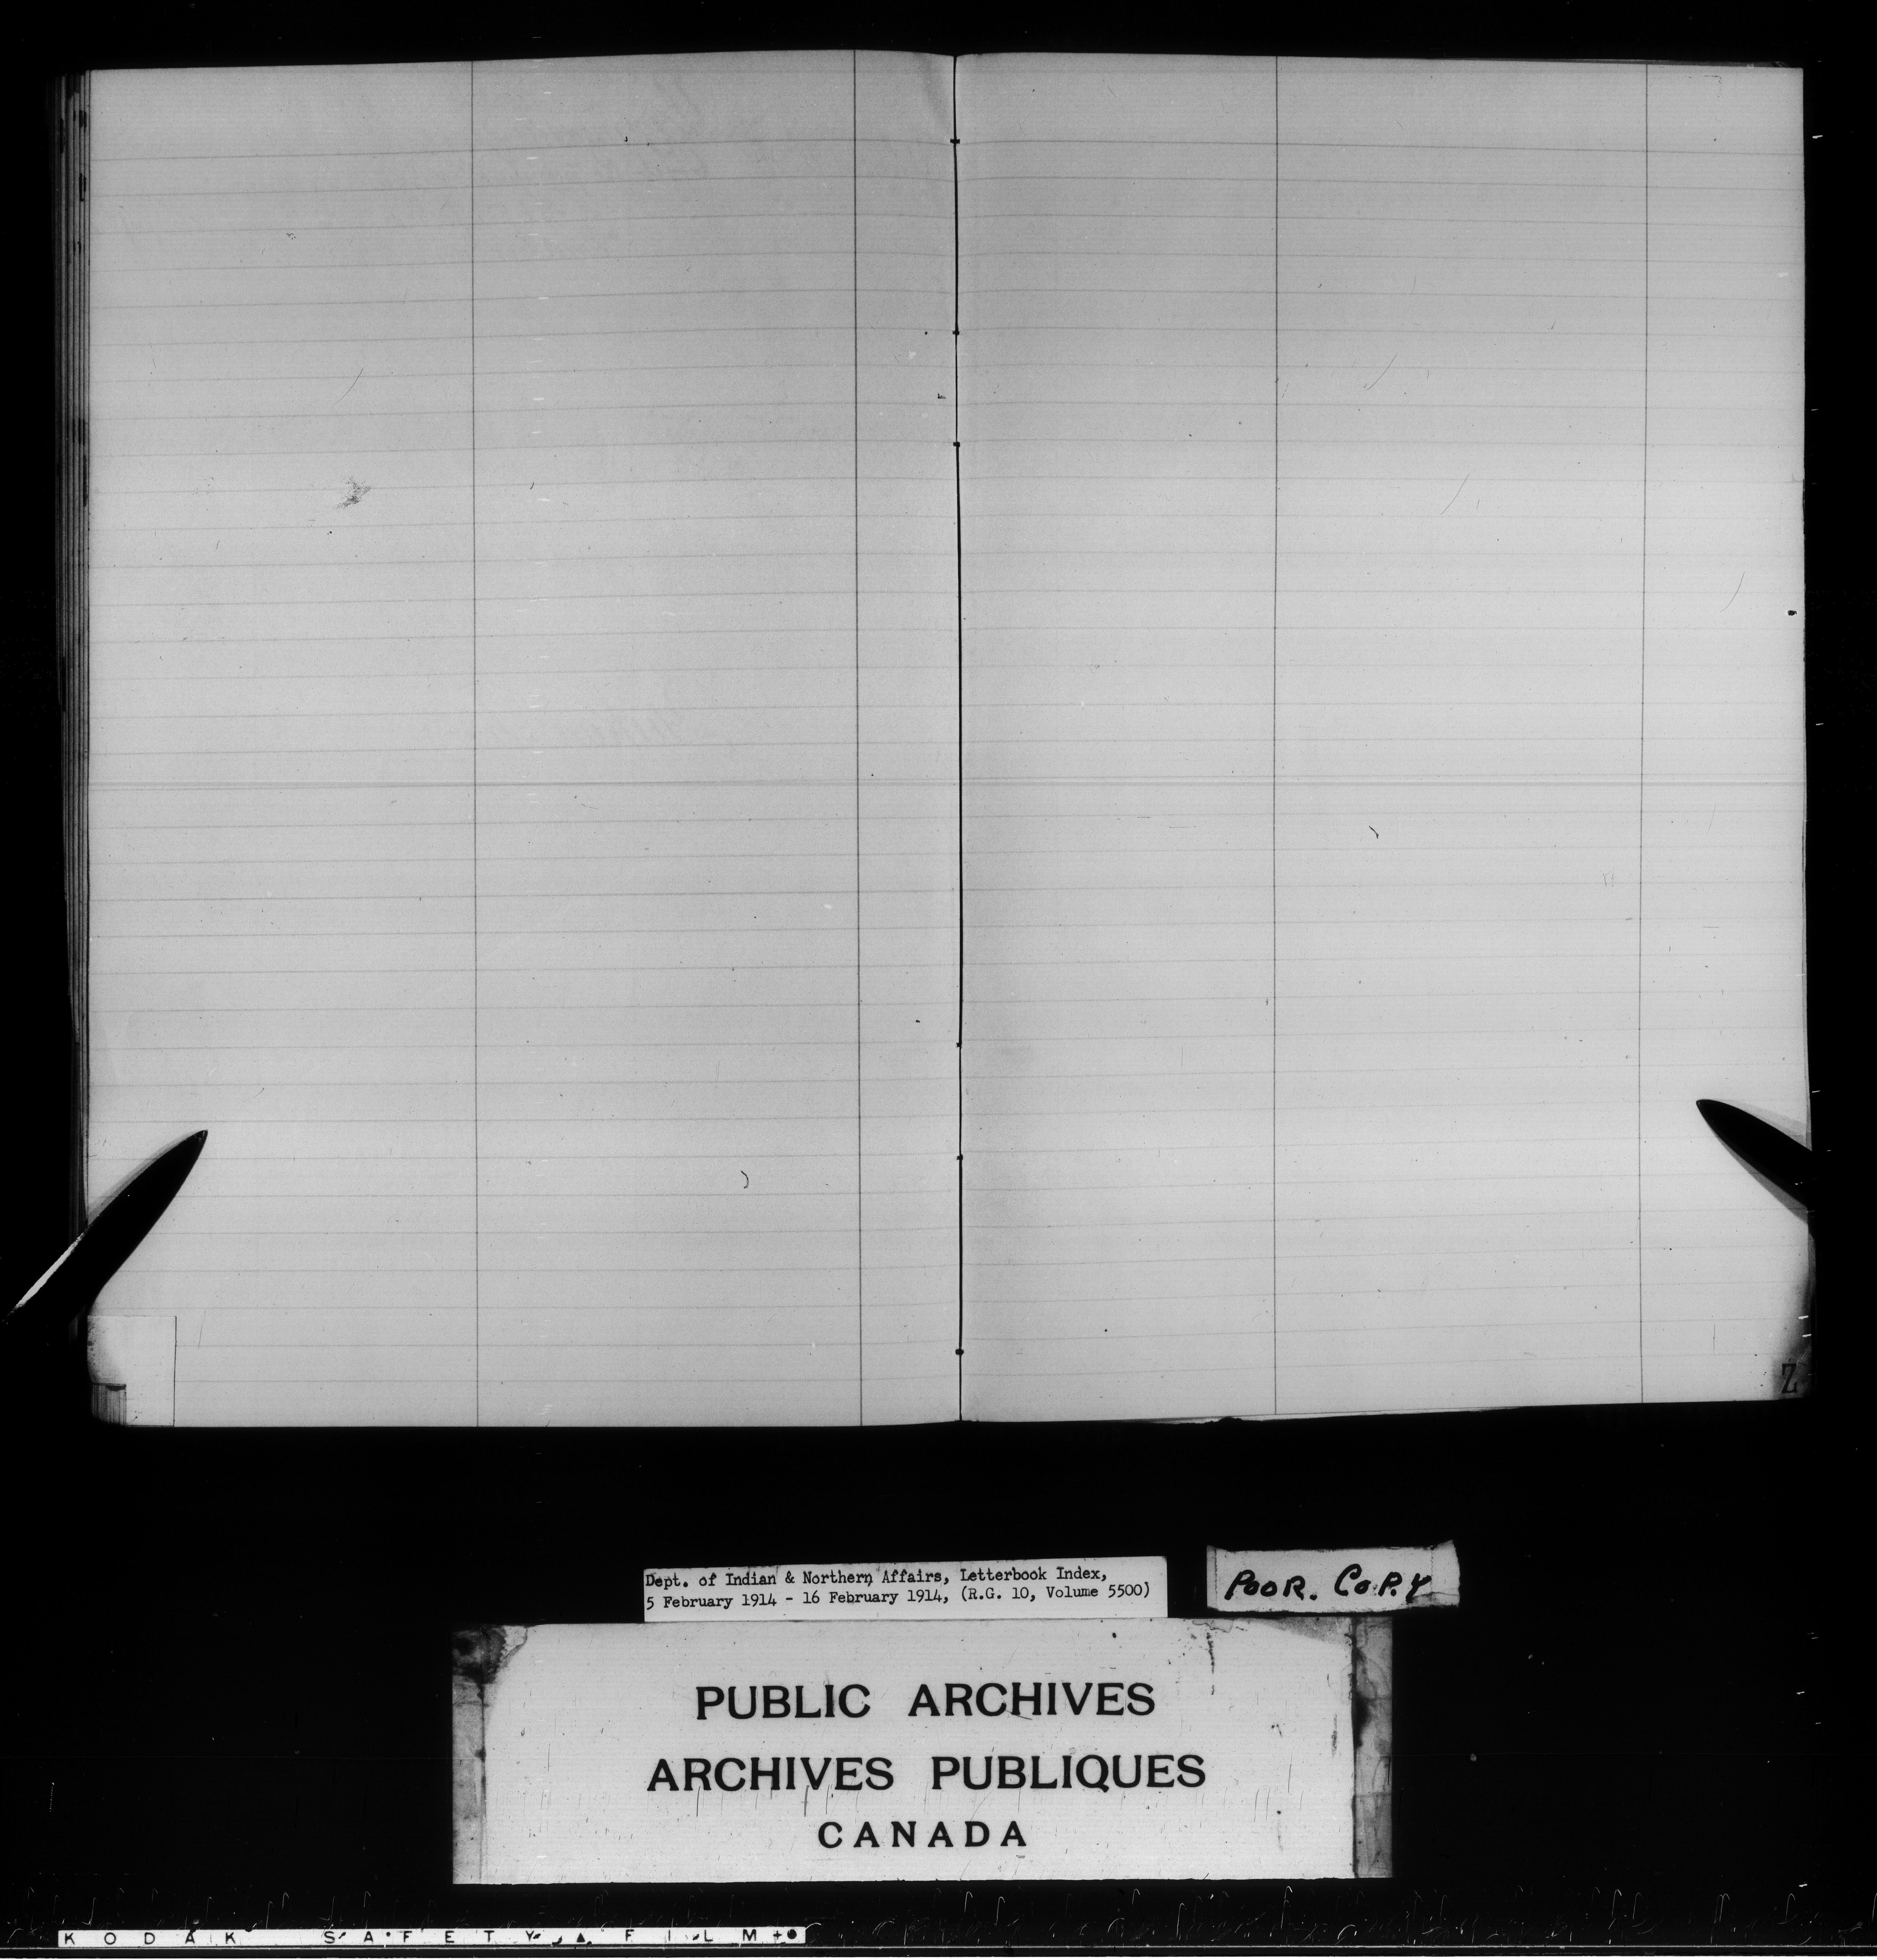 Z
Dept. of Indian & Northern Affairs, Letterbook Index,
5 February 1914 - 16 February 1914, (R.G. 10, Volume 5500)
POOR. COPY
PUBLIC ARCHIVES
ARCHIVES PUBLIQUES
CANADA
KODAK SAFETY FILM